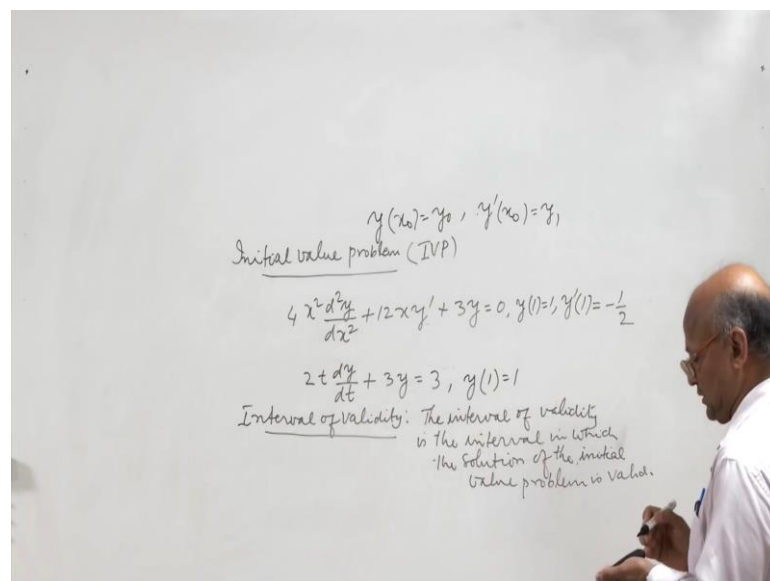 y(x₀)=y₀, y'(x₀)=y₁
Initial value problem (IVP)
4x² d²y/dx² + 12xy' + 3y = 0, y(1)=1, y'(1) = -1/2
2t dy/dt + 3y = 3, y(1)=1
Interval of Validity: The interval of validity
is the interval in which
the solution of the initial
value problem is valid.